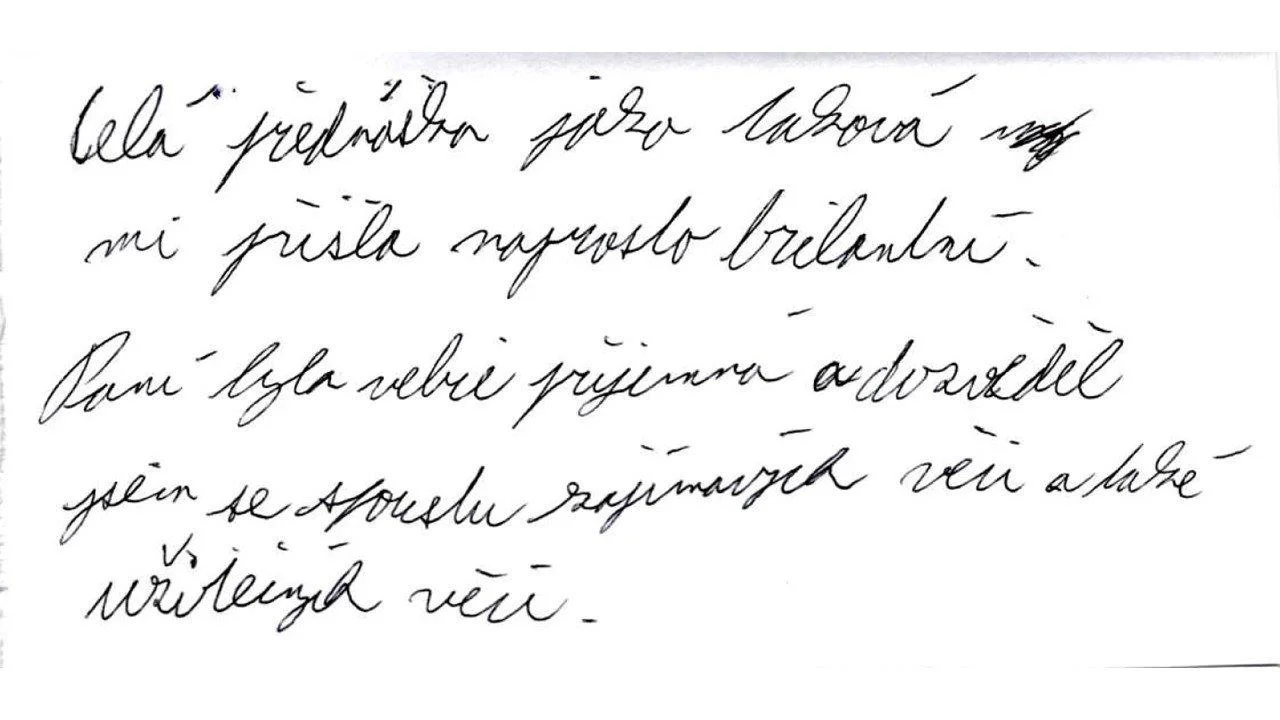 Celá přednáška jako taková
mi přišla naprosto brilantní.
Paní byla velice příjemná a dozvěděl
jsem se spoustu zajímavých věcí a také
užitečných věcí.